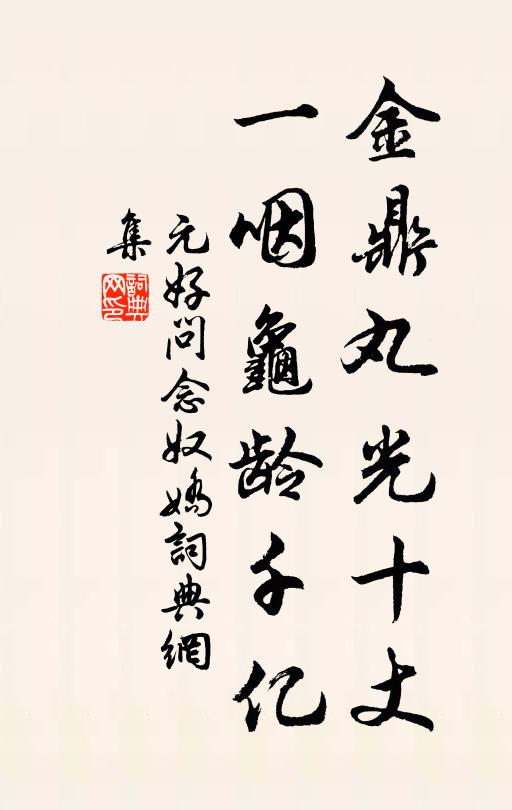 金鼎丸光十丈
一咽龜龄千亿
元好问念奴嬌詞典網
集
詞典网印